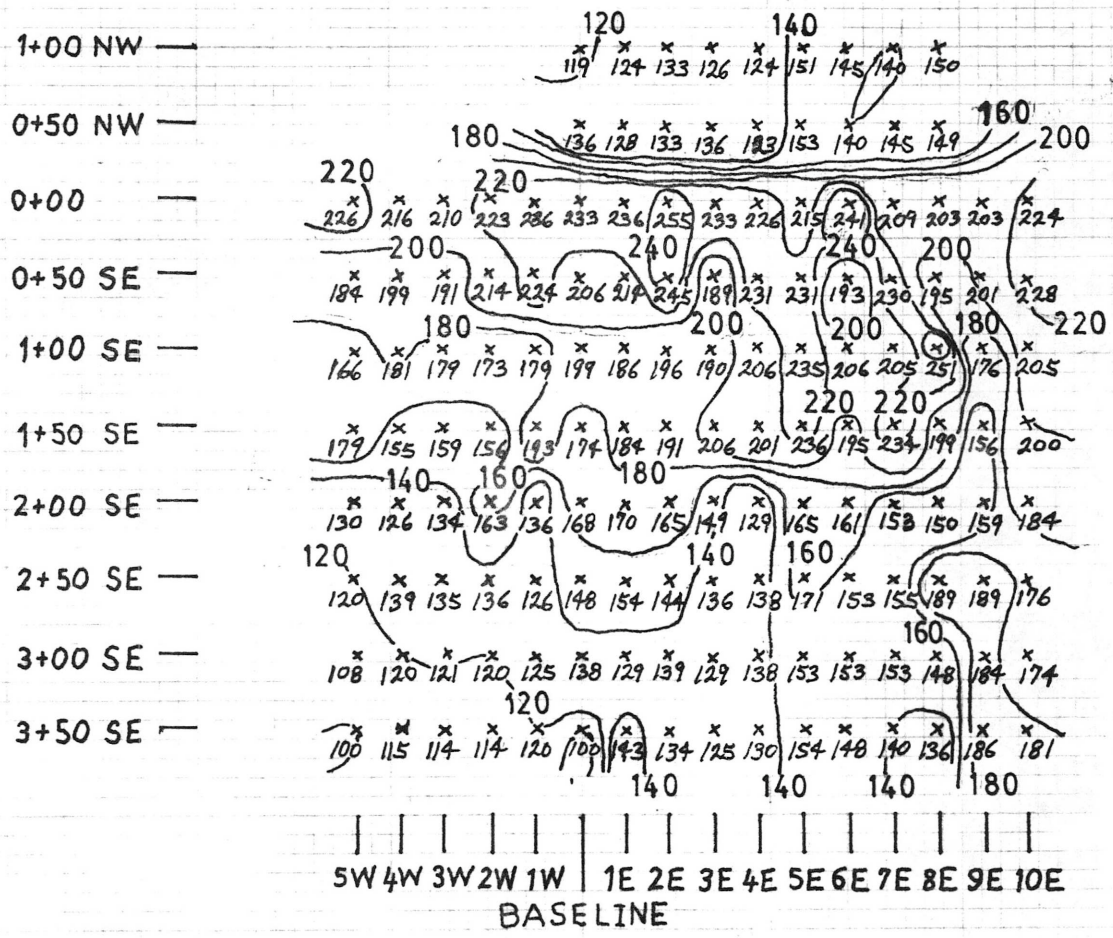 120 140
1+00 NW
119 124 133 126 124 151 145 140 150
160
0+50 NW 180 200
136 128 133 136 123 153 140 145 149
220 220
0+00
226 216 210 223 236 233 236 255 233 226 215 241 209 203 203 224
200 240 240 200
0+50 SE
184 199 191 214 224 206 214 245 189 231 231 193 230 195 201 228
180 200 200 180 220
1+00 SE
166 181 179 173 179 199 186 196 190 206 235 206 205 251 176 205
220 220
1+50 SE
179 155 159 156 193 174 184 191 206 201 236 195 234 199 156 200
140 160 180
2+00 SE
130 126 134 163 136 168 170 165 149 129 165 161 153 150 159 184
120 140 160
2+50 SE
120 139 135 136 126 148 154 144 136 138 171 153 155 189 189 176
160
3+00 SE
108 120 121 120 125 138 129 139 129 138 153 153 153 148 184 174
120
3+50 SE
100 115 114 114 120 100 143 134 125 130 154 148 140 136 186 181
140 140 140 180
5W 4W 3W 2W 1W 1E 2E 3E 4E 5E 6E 7E 8E 9E 10E
BASELINE